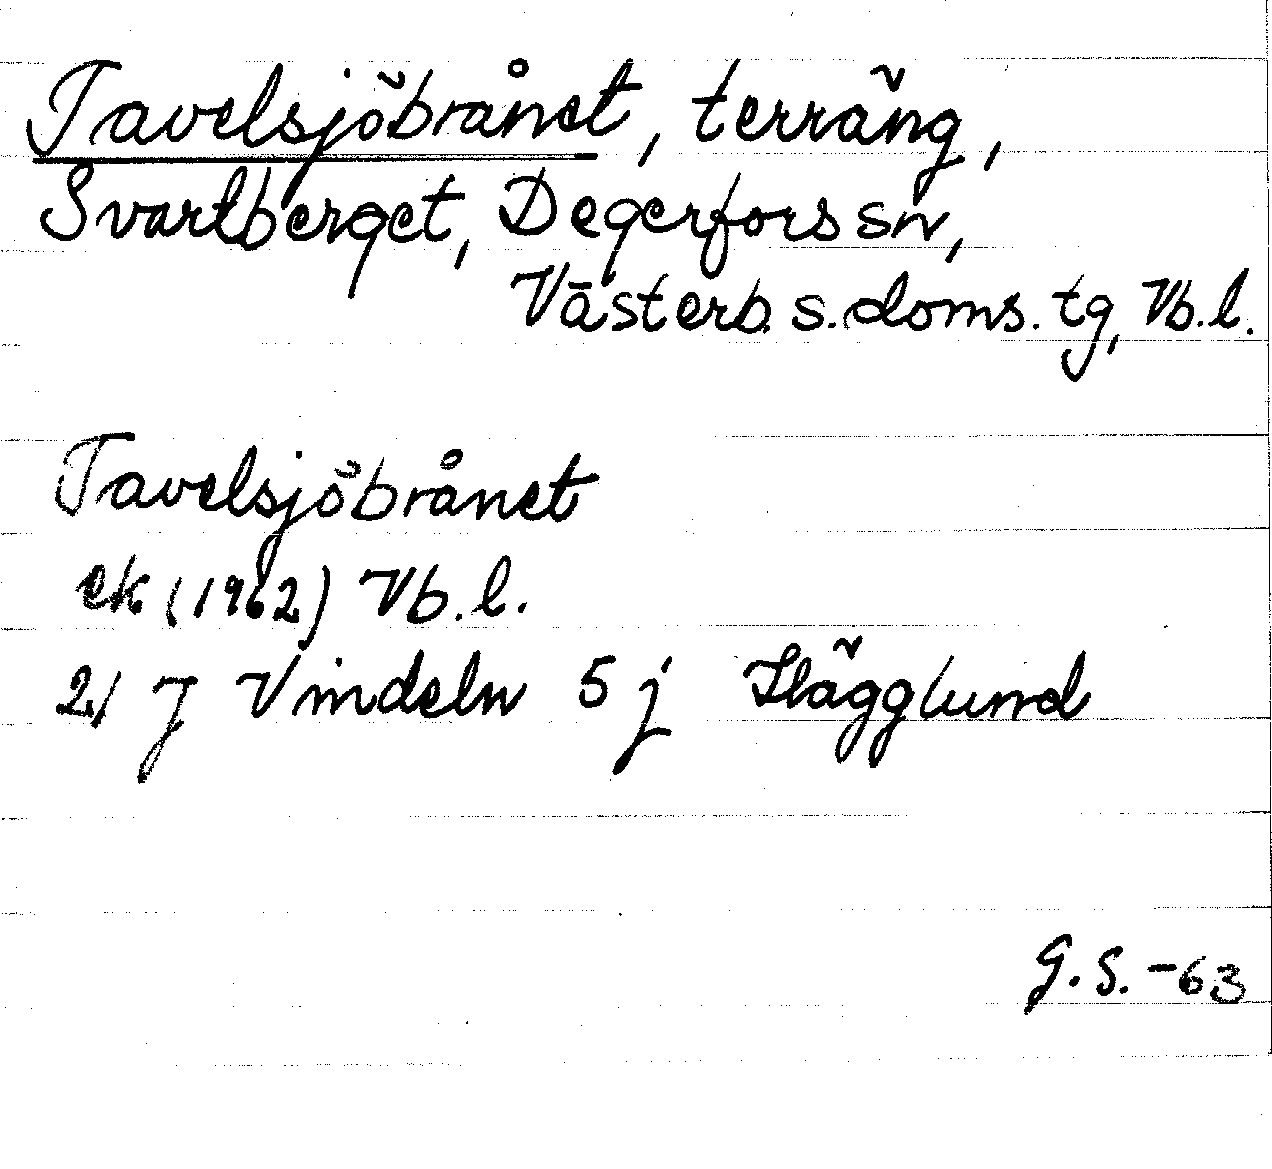 Tavelsjöbrånet, terräng,
Svartberget, Degerfors sn,
Västerb. s. doms. tg, Vb. l.
Tavelsjöbrånet
ek (1962) Vb. l.
21 J Vindeln 5 j Hägglund
G.S. -63